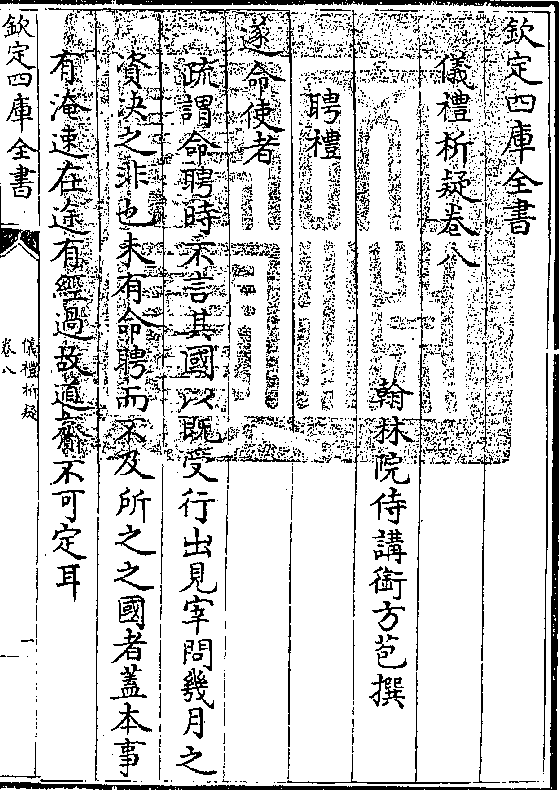 欽定四庫全書
儀禮析疑卷八
翰林院侍講銜方苞撰
聘禮
遂命使者
疏謂命聘時不言其國以既受行出見宰問幾月之
資決之非也未有命聘而不及所之之國者蓋本事
有淹速在途有經過故道齎不可定耳
欽定四庫全書
儀禮析疑
卷八
一